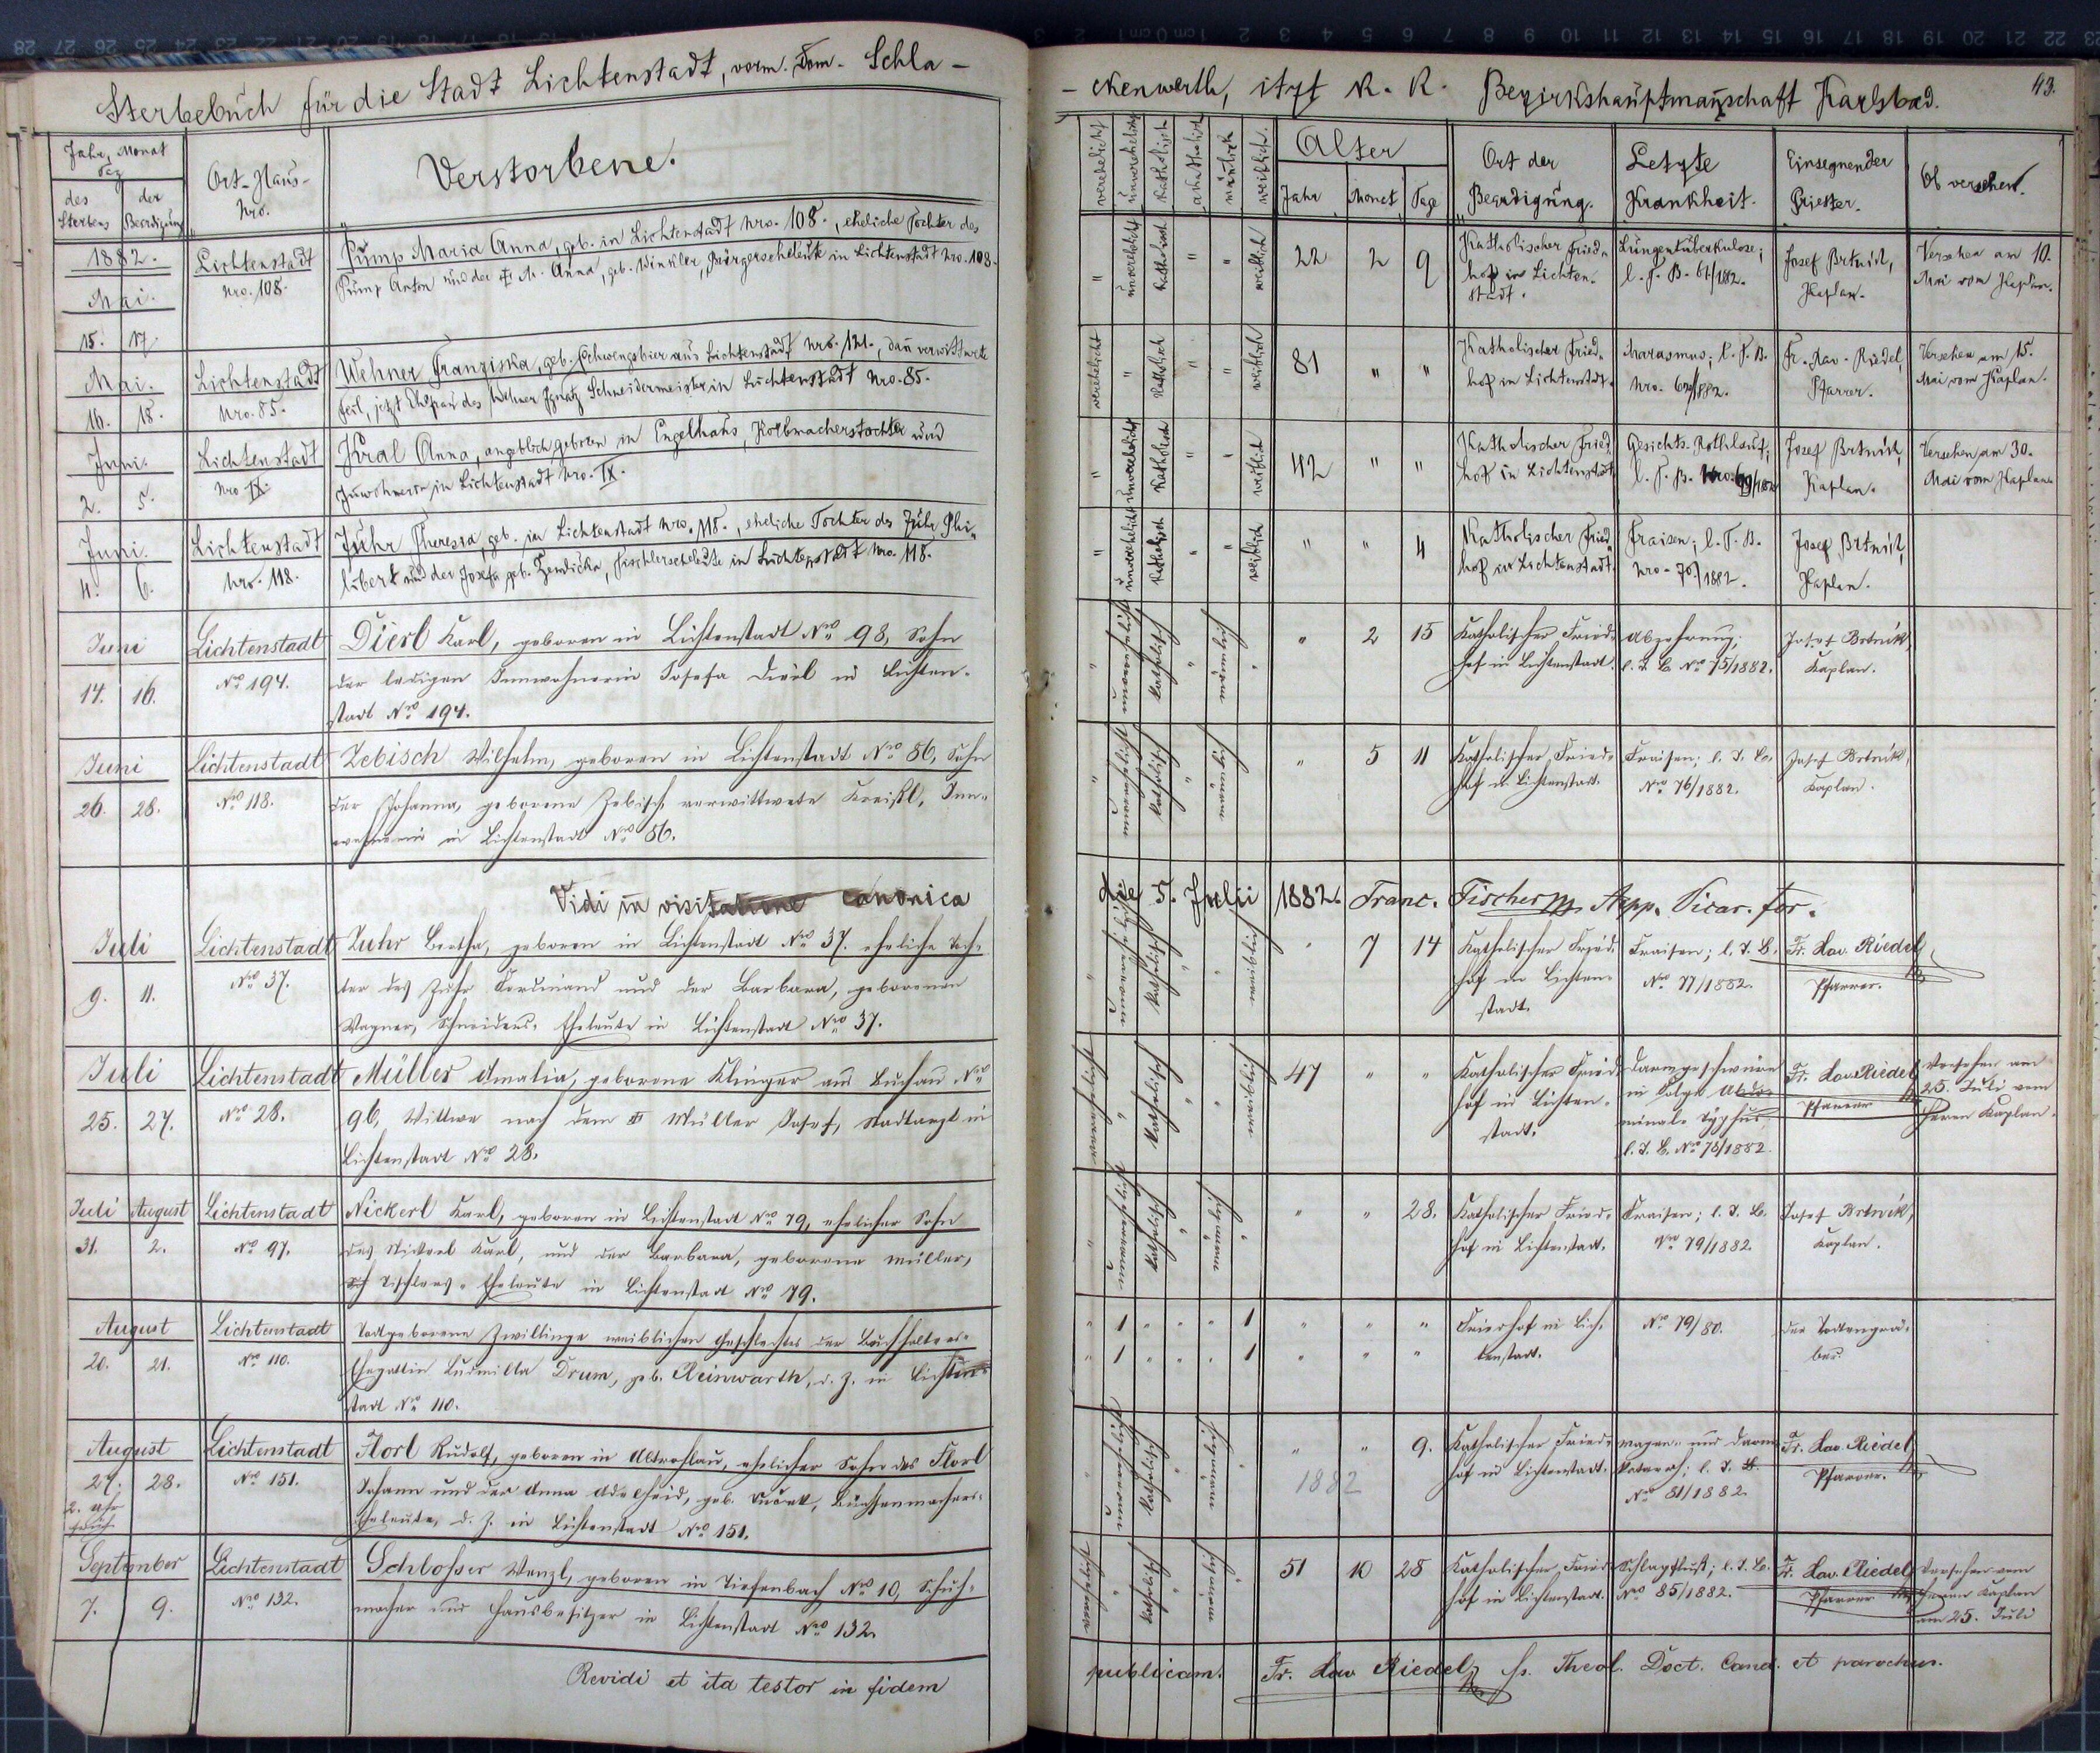 Sterbebuch für die Stadt Lichtenstadt, vorm. Dom. Schla-
-ckenwerth, itzt K. K. Bezirkshauptmannschaft Karlsbad.
43.
Jahr, Monat
Tag
des Sterbens
der Beerdigung
Ort-Haus-
Nro.
Verstorbene.
verehelicht
unverehelicht
katholisch
akatholisch
männlich
weiblich.
Alter
Jahr
Monat
Tage
Ort der
Beerdigung.
Letzte
Krankheit.
Einsegnender
Priester.
Ob versehen.
1882.
Mai.
15. 17
Lichtenstadt
Nro. 108.
Pump Maria Anna, geb. in Lichtenstadt Nro. 108., eheliche Tochter des
Pump Anton und der M. Anna, geb. Winkler, Bürgerseheleute in Lichtenstadt Nro. 108.
" unverehelicht katholisch " " weiblich
22 2 9
Katholischer Fried-
hof in Lichten-
stadt.
Lungentuberkulose;
l. T. B. 61/1882.
Josef Brtnik,
Kaplan.
Versehen am 10.
Mai vom Kaplan.
Mai.
16. 18.
Lichtenstadt
Nro. 85.
Wehner Franziska, geb. Schwengsbier aus Lichtenstadt Nro. 121., dann verwittwete
Feil, jetzt Ehefrau des Wehner Ignatz Schneidermeister in Lichtenstadt Nro. 85.
verehelicht " katholisch " " weiblich
81 " "
Katholischer Fried-
hof in Lichtenstdt.
Marasmus; l. T. B.
Fr. Xav. Riedel,
Pfarrer.
Versehen am 15.
Mai vom Kaplan.
Juni.
2. 5.
Lichtenstadt
Nro IX.
Kral Anna, angeblich geboren in Engelhaus, Korbmacherstochter und
Inwohnerin in Lichtenstadt Nro. IX.
" unverehelicht katholisch " " weiblich
42 " "
Katholischer Fried-
hof in Lichtenstadt
Gesichts-Rothlauf;
l. T. B. Nro. 69/1882
Josef Brtnik,
Kaplan.
Versehen am 30.
Mai vom Kaplan.
Juni.
4. 6.
Lichtenstadt
Nro. 118.
Zuhr Theresia, geb. in Lichtenstadt Nro. 118., eheliche Tochter des Zuhr Phi-
libert und der Josefa geb. Tischlerseheleute in Lichtenstadt Nro. 118.
" unverehelicht katholisch " " weiblich
" " 4
Katholischer Fried-
hof in Lichtenstadt.
Fraisen; l. T. B.
Nro. 70/1882.
Josef Brtnik,
Kaplan.
Juni
14. 16.
Lichtenstadt
No 194.
Dierl Karl, geboren in Lichtenstadt Nro 98, Sohn
der ledigen Innwohnerin Josefa Dierl in Lichten-
stadt Nro 194.
" unverehelicht katholisch " männlich "
" 2 15
Katholischer Fried-
hof in Lichtenstadt.
Abzehrung;
l. T. B. No 75/1882.
Josef Brtnik,
Kaplan.
Juni
26. 28.
Lichtenstadt
Nro 118.
Zebisch Wilhelm, geboren in Lichtenstadt Nro 86, Sohn
der Johanna, geborene Zebisch verwittwete Kreißl, Inn-
wohnerin in Lichtenstadt Nro 86.
" unverehelicht katholisch " männlich "
" 5 11
Katholischer Fried-
hof in Lichtenstadt.
Fraisen; l. T. B.
No 76/1882.
Josef Brtnik,
Kaplan.
Vidi in visitatione canonica
die 5. Julii 1882. Franc. Fischer App. Vicar. for.
Juli
9. 11.
Lichtenstadt
Nro 37.
Zuhr Bertha, geboren in Lichtenstadt Nro 37. eheliche Toch-
ter des Zuhr Ferdinand und der Barbara, geborenen
Wagner, Schneiders-Eheleute in Lichtenstadt Nro 37.
" unverehelicht katholisch " " weiblich
" 7 14
Katholischer Fried-
hof in Lichten-
stadt.
Fraisen; l. T. B.
No 77/1882.
Fr. Xav. Riedel,
Pfarrer.
Juli
25. 27.
Lichtenstadt
No 28.
Müller Amalia, geborene Klinger aus Buchau, Nro
96, Wittwe nach dem Müller Josef, Stadtarzt in
Lichtenstadt No 28.
verehelicht " katholisch " " weiblich
47 " "
Katholischer Fried-
hof in Lichten-
stadt.
Darmgeschwüre
in Folge Abdo-
minal-Typhus
l. T. B. No 78/1882.
Fr. Xav. Riedel
Pfarrer
Versehen am
25. Juli vom
Herrn Kaplan.
Juli August
31. 2.
Lichtenstadt
No 97.
Nickerl Karl, geboren in Lichtenstadt No 79, ehelicher Sohn
des Nickerl Karl, und der Barbara, geborene Müller,
Tischlers-Eheleute in Lichtenstadt No 79.
" unverehelicht katholisch " männlich "
" " 28.
Katholischer Fried-
hof in Lichtenstadt.
Fraisen; l. T. B.
Nro 79/1882.
Josef Brtnik,
Kaplan.
August
20. 21.
Lichtenstadt
No 110.
Todtgeborene Zwillinge weiblichen Geschlechtes der Buchhalters-
Ehegattin Ludmilla Drum, geb. Reinwarth, d. Z. in Lichten-
stadt No 110.
" 1 " " " 1 " " "
" 1 " " " 1 " " "
Friedhof in Lich-
tenstadt.
No 79/80.
der Todtengrä-
ber.
August
27. 28.
2. Uhr
früh
Lichtenstadt
No 151.
Florl Rudolf, geboren in Altrohlau, ehelicher Sohn des Florl
Johann und der Anna Adelheid, geb. Büchsenmachers-
Eheleute, d. Z. in Lichtenstadt No 151.
" unverehelicht katholisch " männlich "
" " 9.
1882
Katholischer Fried-
hof in Lichtenstadt.
Magen- und Darm-
katarrh; l. T. B.
No 81/1882.
Fr. Xav. Riedel,
Pfarrer.
September
7. 9.
Lichtenstadt
No 132.
Schlosser Wenzl, geboren in Tiefenbach Nro 10, Schuh-
macher und Hausbesitzer in Lichtenstadt Nro 132.
verehelicht " katholisch " männlich
51 10 28
Katholischer Fried-
hof in Lichtenstadt.
Schlagfluß; l. T. B.
Nro 85/1882.
Fr. Xav. Riedel,
Pfarrer
Versehen vom
Herrn Kaplan
am 25. Juli
Revidi et ita testor in fidem
publicam. Fr. Xav Riedel, ss. Theol. Doct. Cand. et parochus.